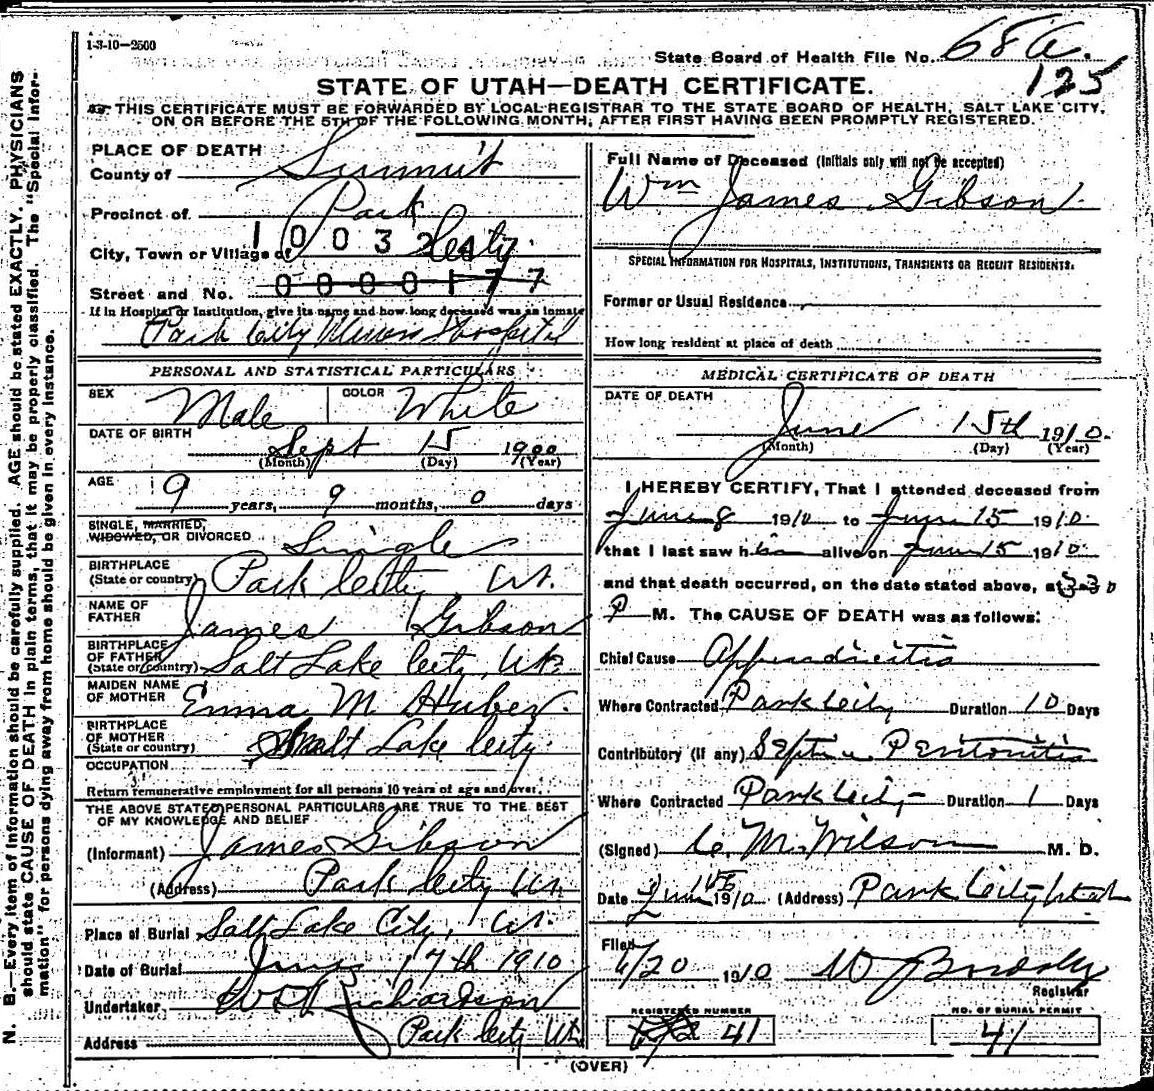 1-3-10—2500
State Board of Health File No. 68 a.
125
STATE OF UTAH—DEATH CERTIFICATE.
THIS CERTIFICATE MUST BE FORWARDED BY LOCAL REGISTRAR TO THE STATE BOARD OF HEALTH, SALT LAKE CITY,
ON OR BEFORE THE 5TH OF THE FOLLOWING MONTH, AFTER FIRST HAVING BEEN PROMPTLY REGISTERED.
PLACE OF DEATH
County of Summit
Precinct of Park
City, Town or Village of City
1003247
Street and No. 0000177
If in Hospital or Institution, give its name and how long deceased was an inmate
Park City Miners Hospital
PERSONAL AND STATISTICAL PARTICULARS
SEX Male COLOR White
DATE OF BIRTH Sept 15 1900
(Month) (Day) (Year)
AGE 9 years, 9 months, 0 days
SINGLE, MARRIED,
WIDOWED, OR DIVORCED Single
BIRTHPLACE
(State or country) Park City Ut.
NAME OF
FATHER James Gibson
BIRTHPLACE
OF FATHER
(State or country) Salt Lake City, Ut.
MAIDEN NAME
OF MOTHER Emma M. Huber.
BIRTHPLACE
OF MOTHER
(State or country) Salt Lake City.
OCCUPATION
Return remunerative employment for all persons 10 years of age and over.
THE ABOVE STATED PERSONAL PARTICULARS ARE TRUE TO THE BEST
OF MY KNOWLEDGE AND BELIEF
(Informant) James Gibson
(Address) Park City Ut.
Place of Burial Salt Lake City, Ut.
Date of Burial June 17th 1910
Undertaker Richardson
Address Park City Ut.
Full Name of Deceased (Initials only will not be accepted)
Wm James Gibson.
SPECIAL INFORMATION FOR HOSPITALS, INSTITUTIONS, TRANSIENTS OR RECENT RESIDENTS.
Former or Usual Residence
How long resident at place of death
MEDICAL CERTIFICATE OF DEATH
DATE OF DEATH
June 15th 1910.
(Month) (Day) (Year)
I HEREBY CERTIFY, That I attended deceased from
June 8 1910 to June 15 1910
that I last saw him alive on June 15 1910
and that death occurred, on the date stated above, at 3-30
P M. The CAUSE OF DEATH was as follows:
Chief Cause Appendicitis
Where Contracted Park City Duration 10 Days
Contributory (if any) Septic Peritonitis
Where Contracted Park City Duration 1 Days
(Signed) C. M. Wilson M. D.
Date June 1910 (Address) Park City Utah
Filed 6/20 1910
Registrar
REGISTERED NUMBER
41
NO. OF BURIAL PERMIT
41
(OVER)
N. B.—Every item of information should be carefully supplied. AGE should be stated EXACTLY. PHYSICIANS
should state CAUSE OF DEATH in plain terms, that it may be properly classified. The "Special Infor-
mation" for persons dying away from home should be given in every instance.